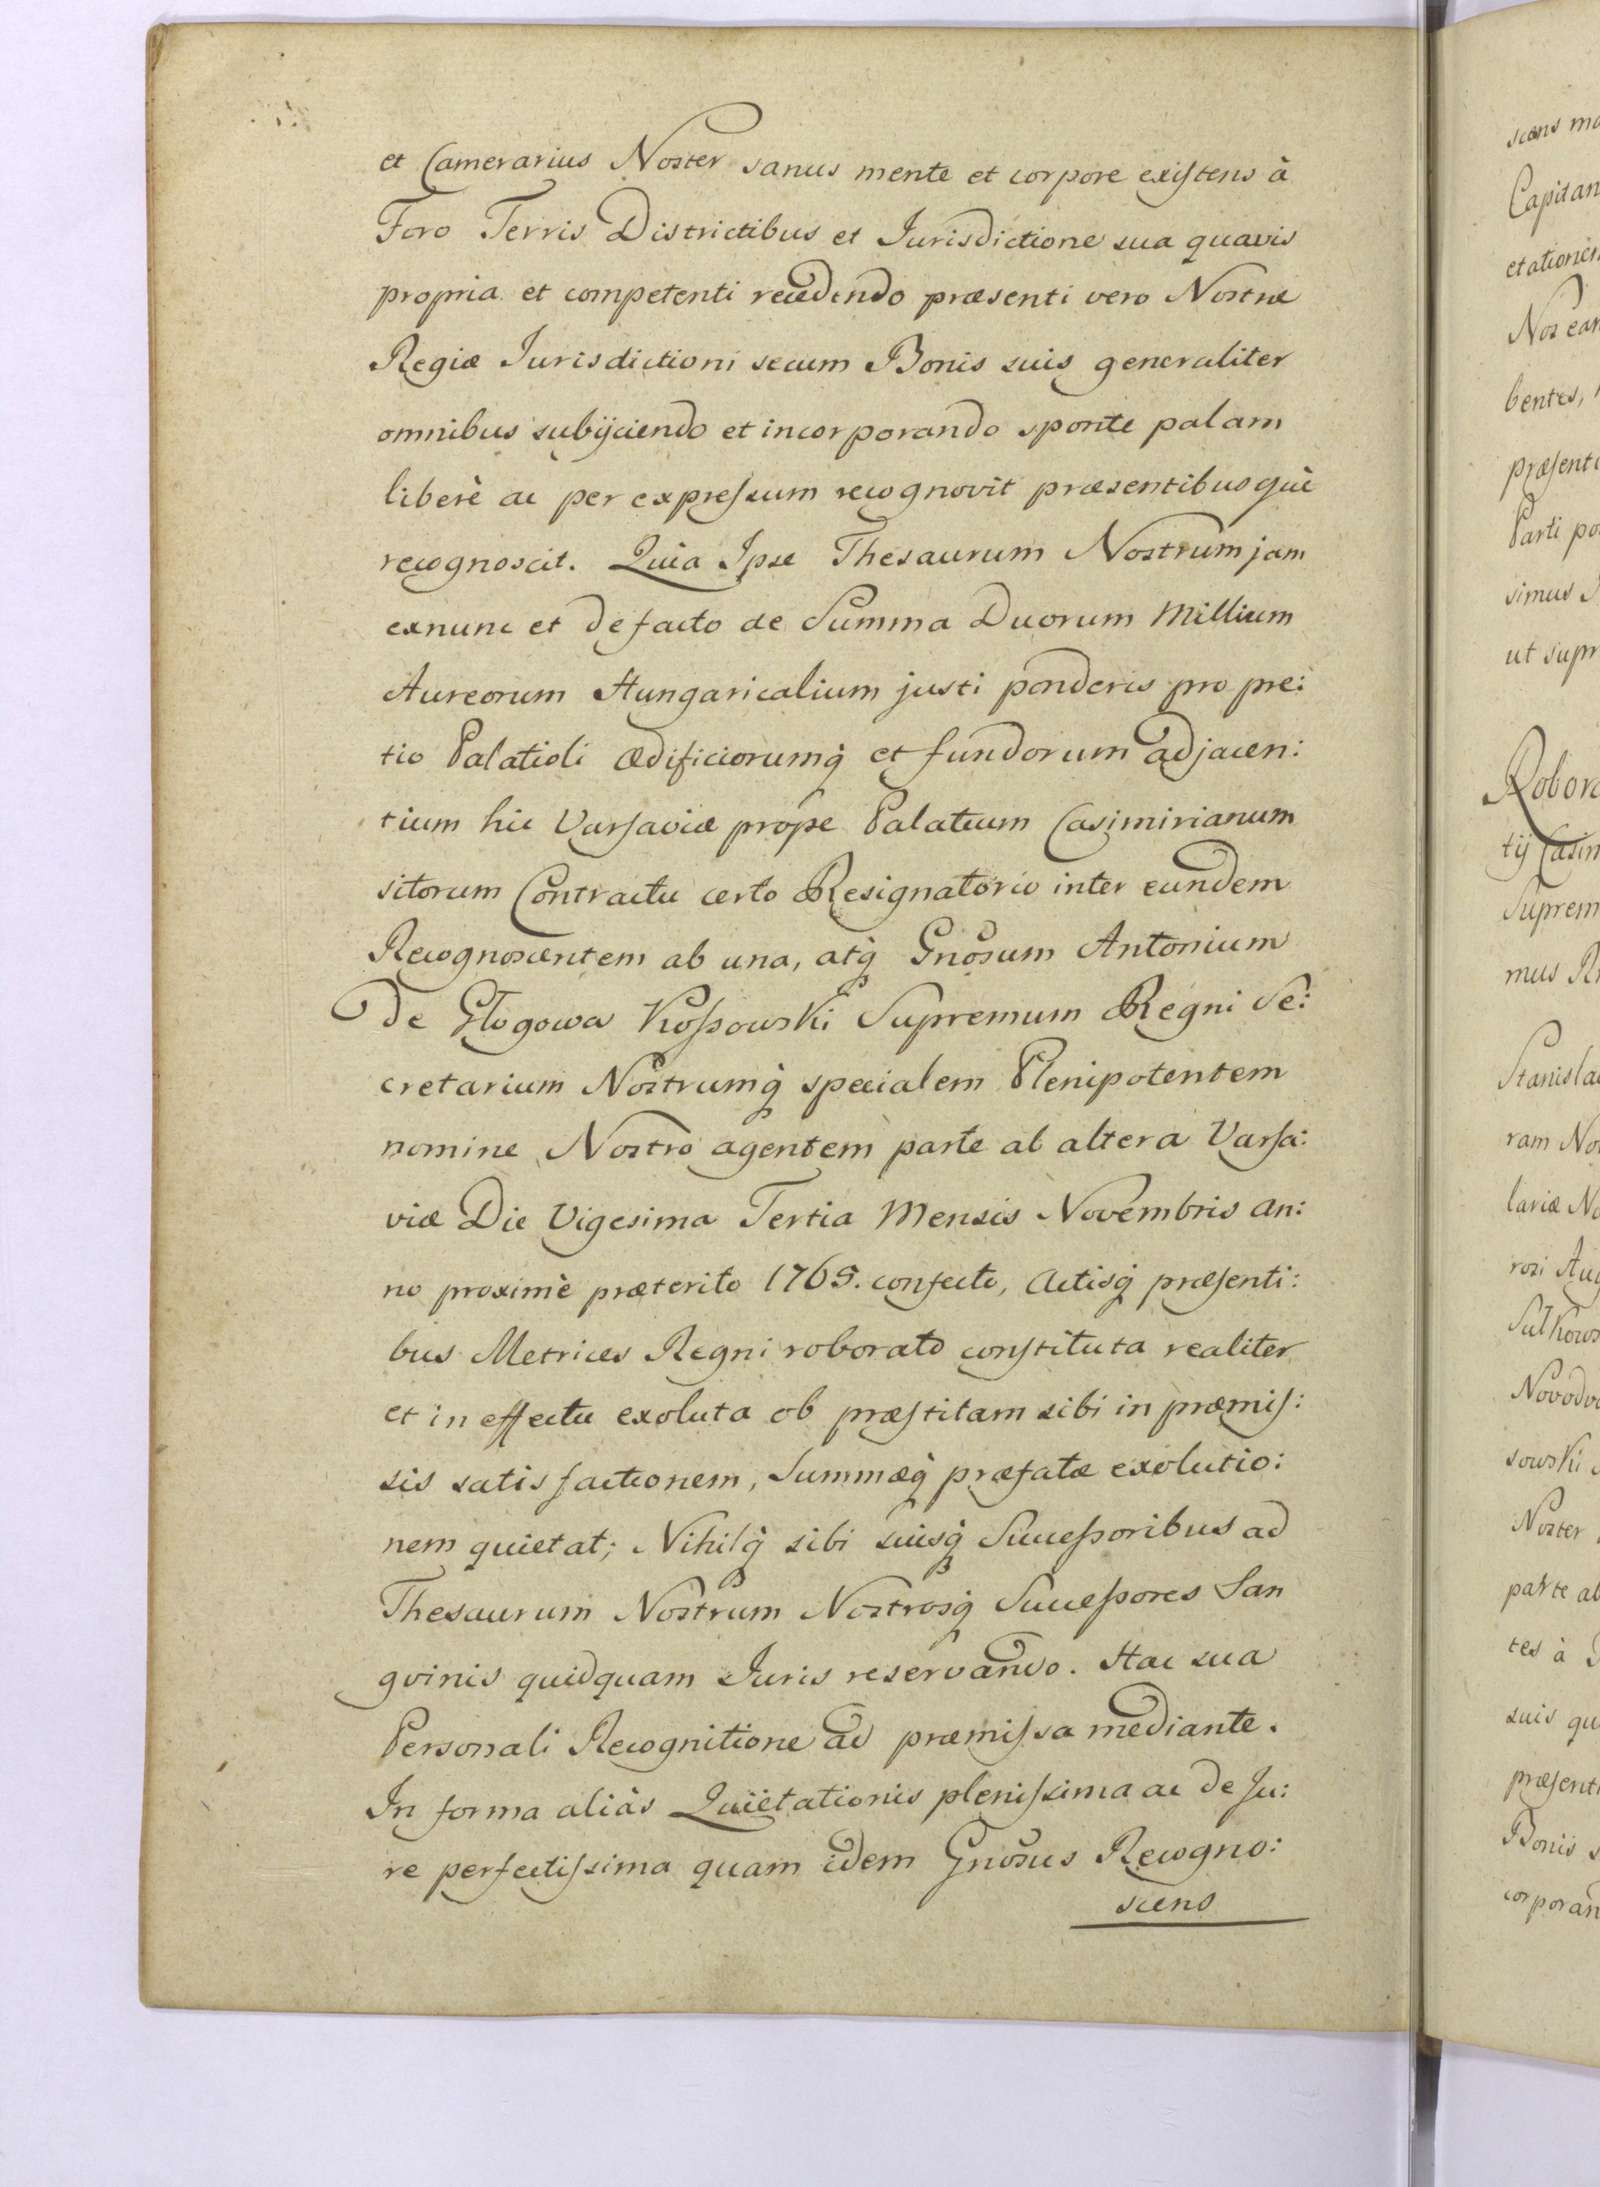 et Camerarius Noster sanus mente et corpore existens à
Foro Terris Districtibus et Jurisdictione sua quavis
propria et competenti recedendo præsenti vero Nostræ
Regiæ Jurisdictioni secum Bonis suis generaliter
omnibus subijciendo et incorporando sponte palam
liberè ac per expressum recognovit præsentibusquè
recognoscit. Quia Ipse Thesaurum Nostrum jam
exnunc et defacto de Summa Duorum Millium
Aureorum Hungaricalium justi ponderis pro pre:
tio Palatioli ædificiorumq̃ et fundorum adjacen:
tium hic Varsaviæ prope Palatium Casimirianum
sitorum Contractu certo Resignatorio inter eundem
Recognoscentem ab una, atq̃ Gnosum Antonium
de Głogowa Kossowski Supremum Regni Se:
cretarium Nostrumq̃ specialem Plenipotentem
nomine Nostro agentem parte ab altera Varsa:
viæ Die Vigesima Tertia Mensis Novembris An:
no proximè præterito 1765. confecto, Actisq̃ præsenti:
bus Metrices Regni roborato constituta realiter
et in effectu exoluta ob præstitam sibi in præmis:
sis satisfactionem, Summæq̃ præfatæ exolutio:
nem quietat; Nihilq̃ sibi suisq̃ Successoribus ad
Thesaurum Nostrum Nostrosq̃ Successores San
gvinis quidquam Juris reservando. Hac sua
Personali Recognitione ad præmissa mediante.
In forma aliàs Quietationis plenissima ac de Ju:
re perfectissima quam idem Gnosus Recogno:
scens
scens
Capitan
etationem
Nos ean
bentes,
præsenti
Parti
simus
ut supr
Robora
tij Casim
Suprem
mus
Stanisla
ram
lariæ
Sulkows
Novodvo
sowski
Noster
parte ab
tes à
suis
præsenti
Bonis
corporan